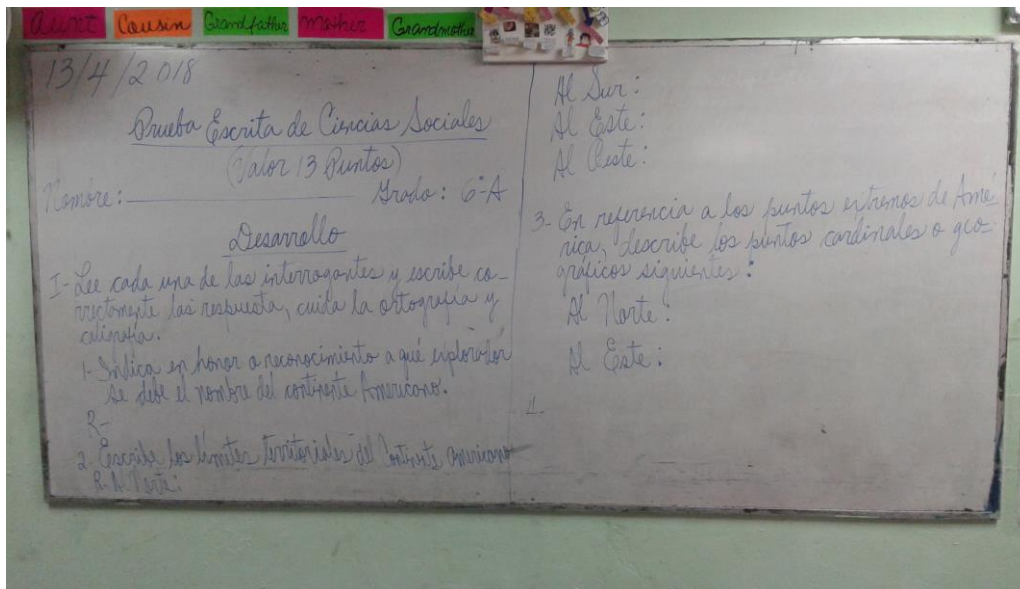 Aunt
Cousin
Grandfather
Mother
Grandmother
13/4/2018
Prueba Escrita de Ciencias Sociales
(Valor 13 Puntos)
Nombre: Grado: 6°-A
Desarrollo
I- Lee cada una de las interrogantes y escribe co-
rrectamente las respuesta, cuida la ortografía y
caligrafía.
1- Indica en honor o reconocimiento a qué explorador
se debe el nombre del continente Americano.
R-
2. Escribe los límites territoriales del Continente americano
R. Al Norte:
Al Sur:
Al Este:
Al Oeste:
3- En referencia a los puntos extremos de Amé-
rica, describe los puntos cardinales o geo-
gráficos siguientes:
Al Norte:
Al Este:
4-